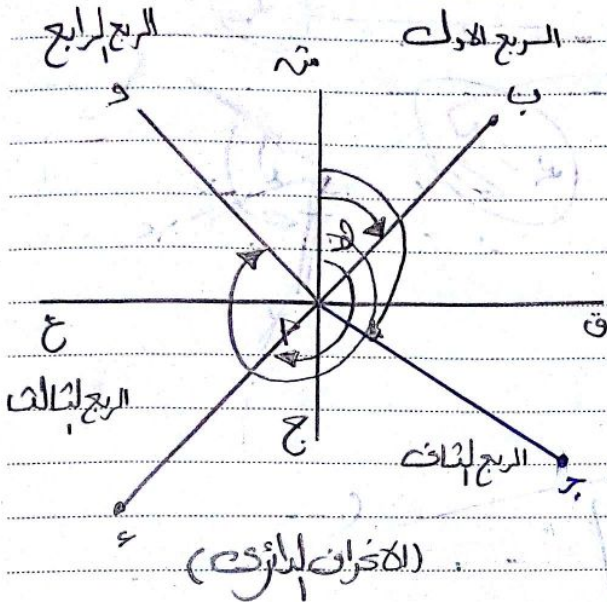 الربع الرابع
الربع الاول
ش
و
ب
غ
ق
الربع الثالث
ج
الربع الثانى
ج
ء
(الانحراف الدائرى)